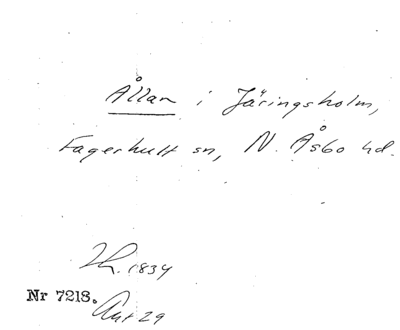 Ållan i Järingsholm,
Fagerhult sn, N. Åsbo hd.
1834
Nr 7218.
29